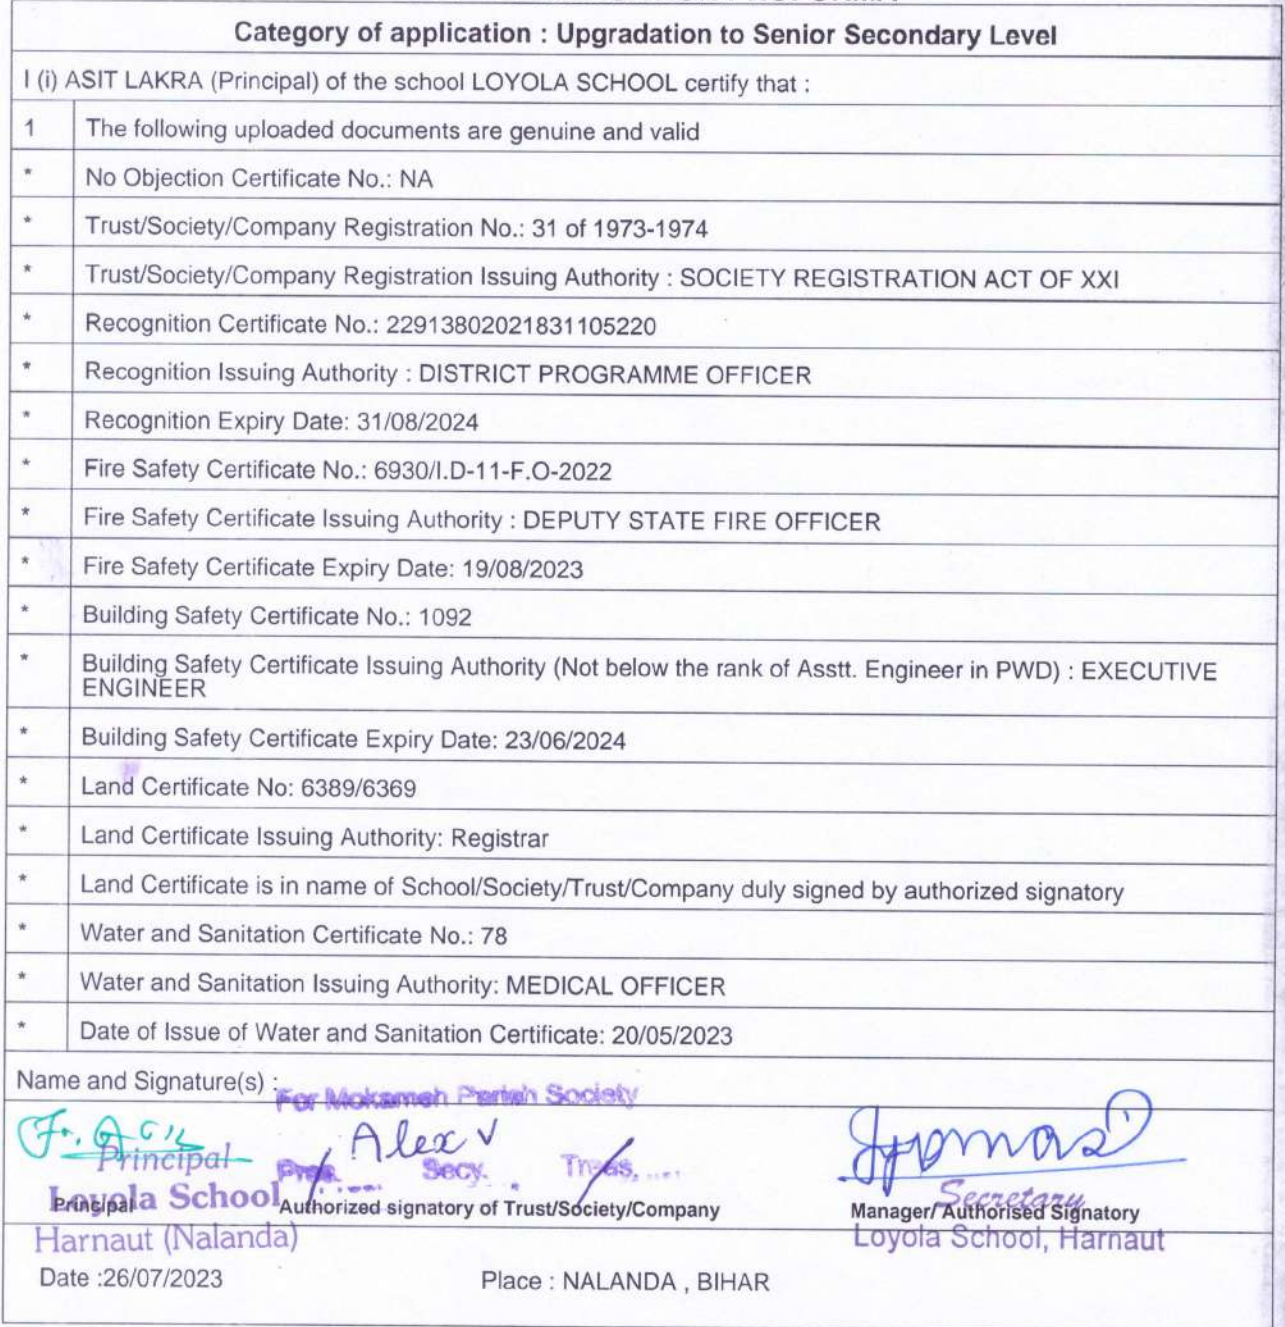 Category of application : Upgradation to Senior Secondary Level
I (i) ASIT LAKRA (Principal) of the school LOYOLA SCHOOL certify that :
1 The following uploaded documents are genuine and valid
* No Objection Certificate No.: NA
* Trust/Society/Company Registration No.: 31 of 1973-1974
* Trust/Society/Company Registration Issuing Authority : SOCIETY REGISTRATION ACT OF XXI
* Recognition Certificate No.: 22913802021831105220
* Recognition Issuing Authority : DISTRICT PROGRAMME OFFICER
* Recognition Expiry Date: 31/08/2024
* Fire Safety Certificate No.: 6930/I.D-11-F.O-2022
* Fire Safety Certificate Issuing Authority : DEPUTY STATE FIRE OFFICER
* Fire Safety Certificate Expiry Date: 19/08/2023
* Building Safety Certificate No.: 1092
* Building Safety Certificate Issuing Authority (Not below the rank of Asstt. Engineer in PWD) : EXECUTIVE
ENGINEER
* Building Safety Certificate Expiry Date: 23/06/2024
* Land Certificate No: 6389/6369
* Land Certificate Issuing Authority: Registrar
* Land Certificate is in name of School/Society/Trust/Company duly signed by authorized signatory
* Water and Sanitation Certificate No.: 78
* Water and Sanitation Issuing Authority: MEDICAL OFFICER
* Date of Issue of Water and Sanitation Certificate: 20/05/2023
Name and Signature(s) :
For Mokameh Parish Society
Fr. Alex V
Principal Pres. Secy. Treas, ....
Loyola School Secretary
Principal Authorized signatory of Trust/Society/Company Manager/Authorised Signatory
Harnaut (Nalanda) Loyola School, Harnaut
Date :26/07/2023 Place : NALANDA , BIHAR